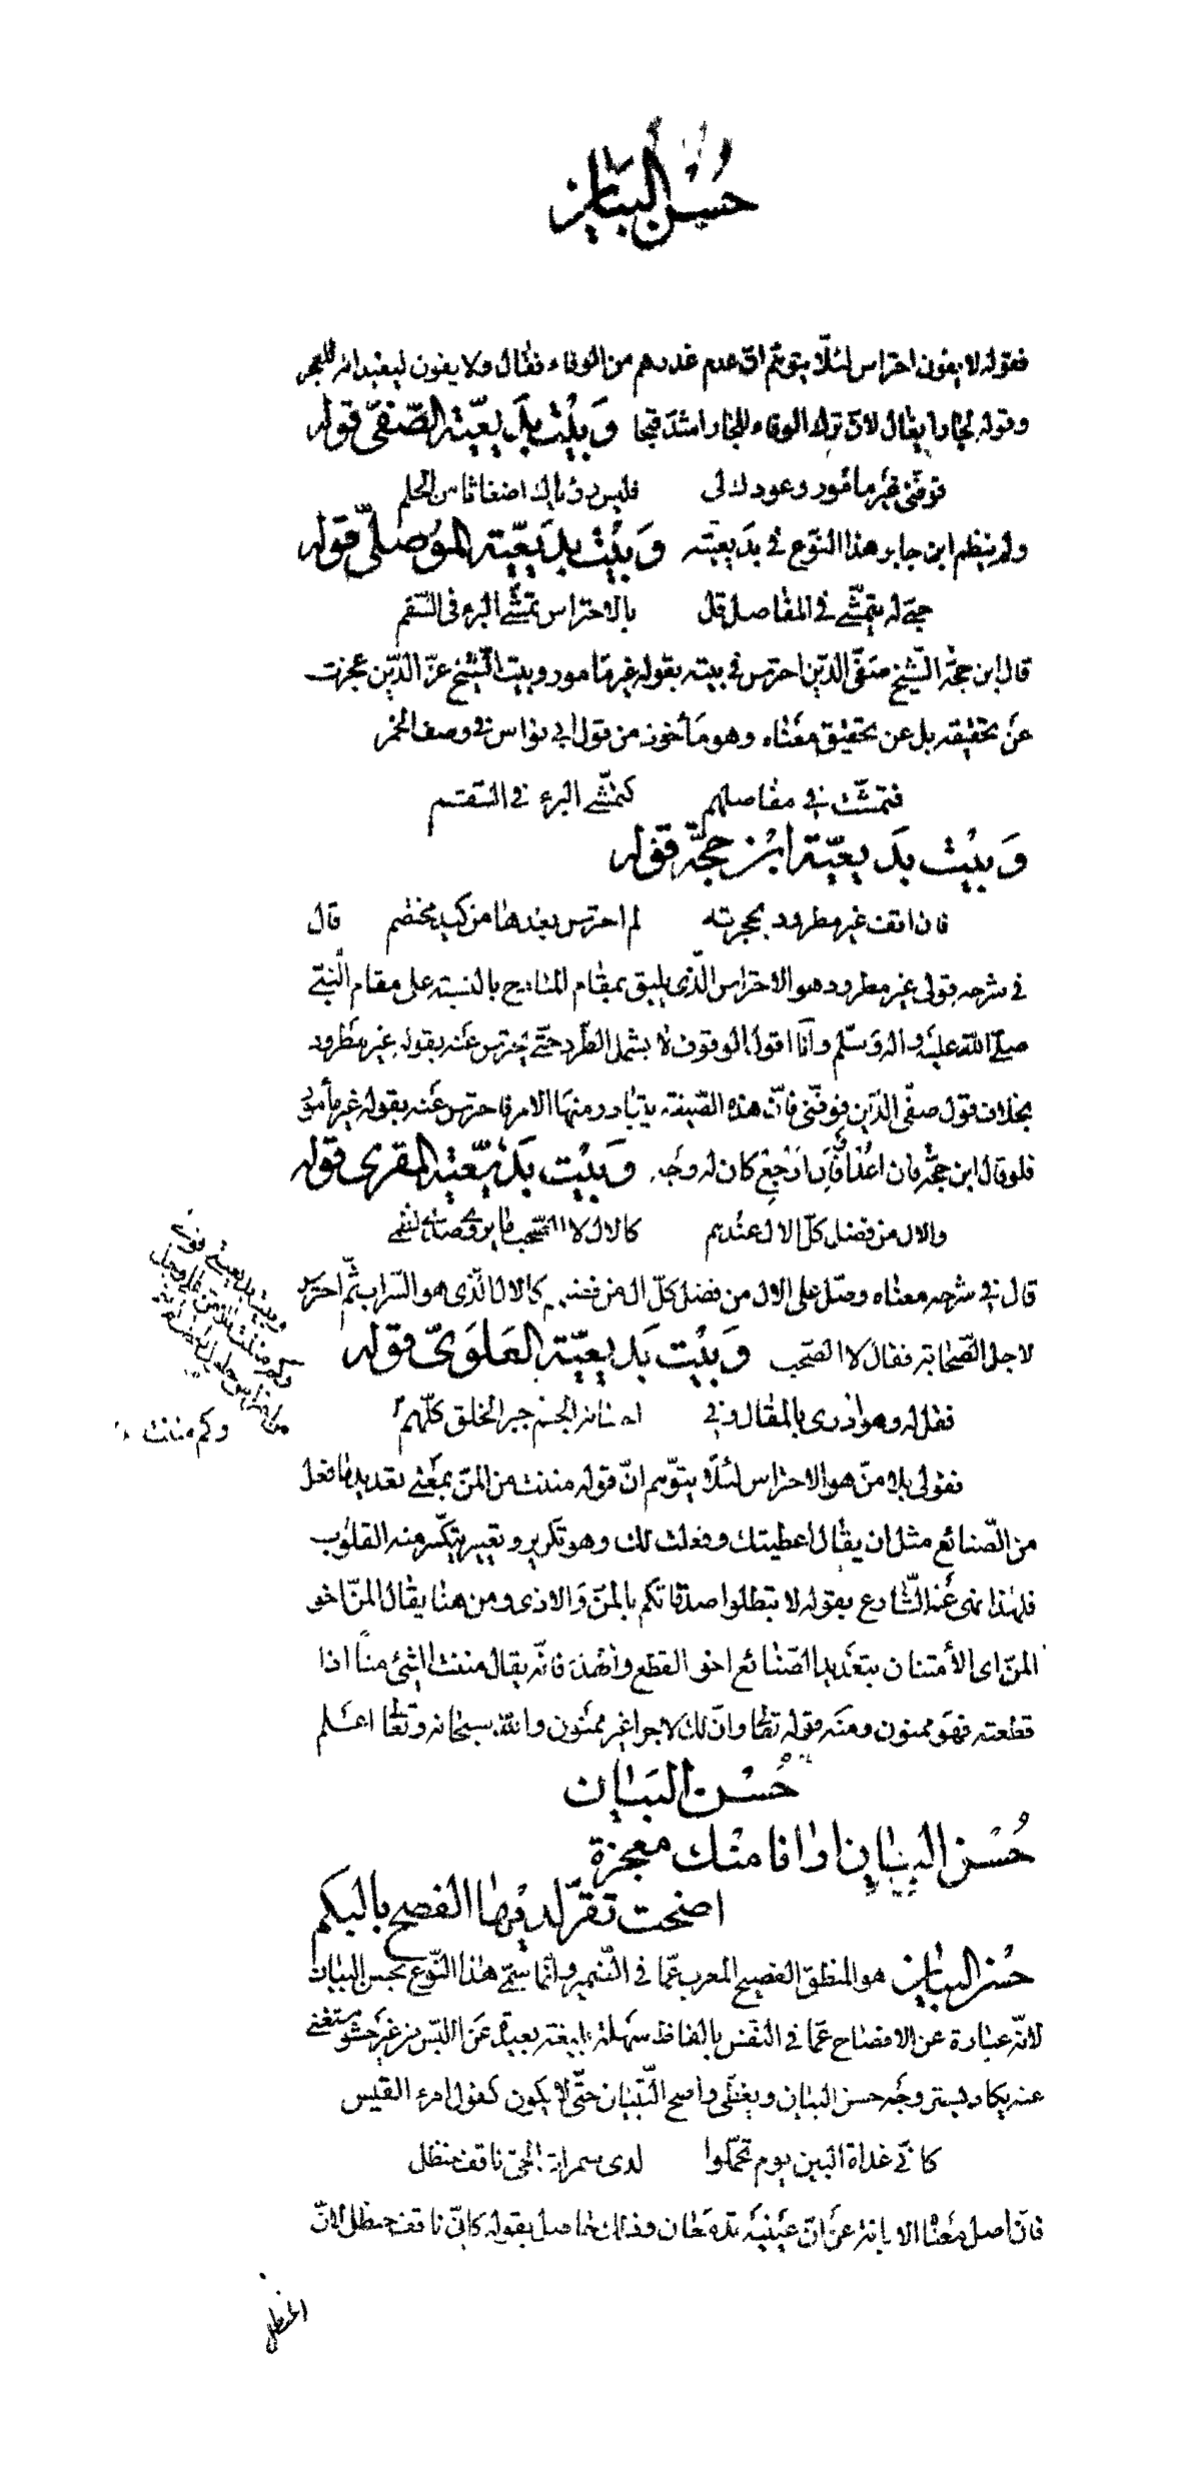 حُسْن البَيَان
فقوله لا يفون احتراس لئلّا يتوهّم انّ عدم غدرهم من الوفاء فقال ولا يفون ليفيد انه للعجز
وقوله لجار ايغال لانّ ترك الوفاء للجار اشدّ قبحا وَبَيْت بَديعيّته الصّفىّ قوله
فوفّنى غير مأمور وعودك لى فليس رؤياك اضغاثا من الحلم
ولم ينظم ابن جابر هذا النّوع فى بديعيّته وَبَيْت بَديعيّته الموصلىّ قوله
حبّى له يتمشّى فى المفاصل قل بالاحتراس تمشّى البرء فى السّقم
قال ابن حجّة الشّيخ صفىّ الدّين احترس فى بيته بقوله غير مأمور وبيت الشّيخ عزّ الدّين عجزت
عن تحقيقه بل عن تحقيق معناه وهو مأخوذ من قول ابى نواس فى وصف الخمر
فتمشّت فى مفاصلهم كتمشّى البرء فى السّقم
وَبَيْت بَديعيّة ابن حجّة قوله
فان اقف غير مطرود بحجرته لم احترس بعدها من كيد مختصم قال
فى شرحه قولى غير مطرود هو الاحتراس الّذى يليق بمقام المادح بالنسبة على مقام النّبىّ
صلّى اللّه عليه واله وسلّم وانا اقول الوقوف لا يشمل الطّرد حتّى يحترس عنه بقوله غير مطرود
بخلاف قول صفىّ الدّين فوفّنى فانّ هذه الصّيغة يتبادر منها الامر فاحترس عنه بقوله غير مأمور
فلو قال ابن حجّة فان اعد ... ارجع كان له وجه وَبَيْت بَديعيّة المقرى قوله
والال من فضل كلّ الال عندهم كالال لا الصّحب
قال فى شرحه معناه وصلّ على الال من فضل كلّ ال عندهم كالال الّذى هو السّراب ثمّ احترس
لاجل الصّحابة فقال لا الصّحب وَبَيْت بَديعيّة العَلَوىّ قوله
فقل له وهو ادرى بالمقال وفى احسانه الجمّ جبر الخلق كلّهم
وبيت بديعيتى قولى
وكم مننت بلا منّ
وكم مننت
فقولى بلا منّ هو الاحتراس لئلّا يتوهّم انّ قوله مننت من المنّ بمعنى تعديد ما فعل
من الصّنائع مثل ان يقال اعطيتك وفعلت لك وهو تكرير وتعيير يتكسّر منه القلوب
فلهذا نهى عنه الشّارع بقوله لا تبطلوا صدقاتكم بالمنّ والاذى ومن هنا يقال المنّ اخو
المنّ اى الأمتنان بتعديد الصّنائع اخو القطع والهدم فانّه يقال مننت الشئ منًّا اذا
قطعته فهو ممنون ومنه قوله تعالى وانّ لك لاجرا غير ممنون واللّه سبحانه وتعالى اعلم
حُسْن البَيَان
حُسْن البَيَان ارانا منْك معجزة
اضحت تقرّ لديها الفصح بالبكم
حُسْن البيان هو المنطق الفصيح المعرب عمّا فى الضّمير وانّما سمّى هذا النّوع بحسن البيان
لانّه عبارة عن الافصاح عمّا فى النفس بالفاظ سهلة بليغة بعيدة عن اللبس من غير حشو مستغنى
عنه يكاد يستر وجه حسن البيان ويغطّى واضح التّبيان حتّى لا يكون كقول امرء القيس
كانّى غداة البين يوم تحمّلوا لدى سمرات الحىّ ناقف حنظل
فانّ اصل معنا الابانة عن انّ عينيه تدمعان وذلك حاصل بقوله كانّى ناقف حنظل لانّ
الحنظل